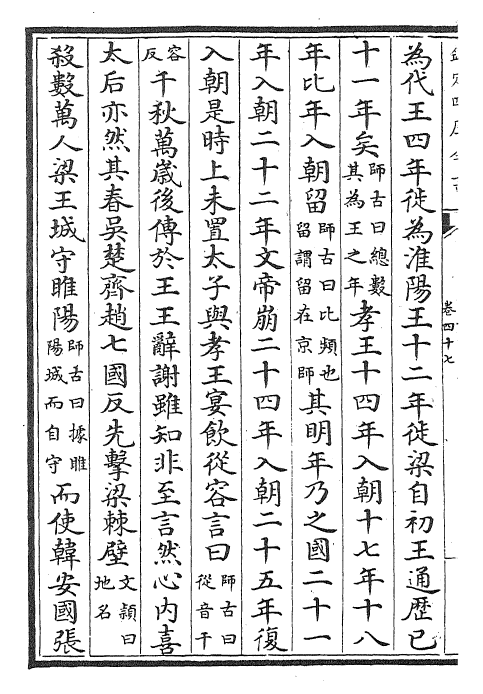 卷四十七
為代王四年徙為淮陽王十二年徙梁自初王通歴已
十一年矣師古曰總數其為王之年孝王十四年入朝十七年十八
年比年入朝留師古曰比頻也留謂留在京師其明年乃之國二十一
年入朝二十二年文帝崩二十四年入朝二十五年復
入朝是時上未置太子與孝王宴飲從容言曰師古曰從音千
容反千秋萬歲後傳於王王辭謝雖知非至言然心內喜
太后亦然其春吳楚齊趙七國反先擊梁棘壁文頴曰地名
殺數萬人梁王城守睢陽師古曰據睢陽城而自守而使韓安國張